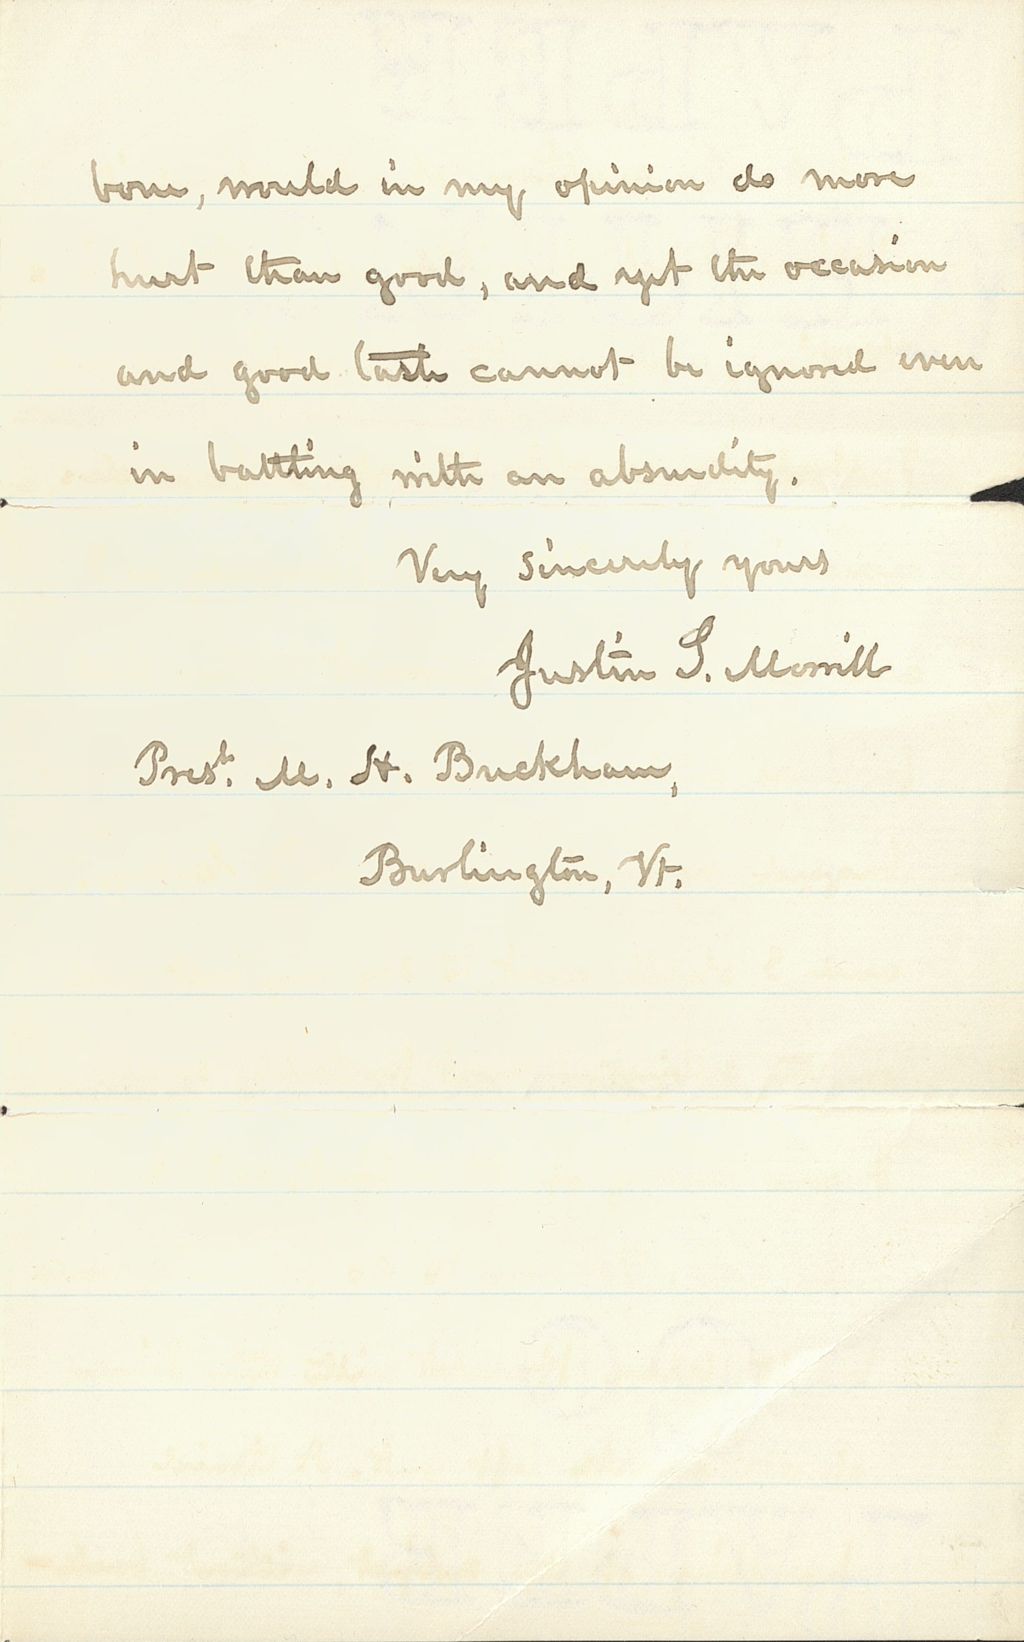 bone, would in my opinion do more
hurt than good, and yet the occasion
and good taste cannot be ignored even
in battling with an absurdity.
Very sincerely yours
Justin S. Morrill
Prest. M. H. Buckham,
Burlington, Vt.